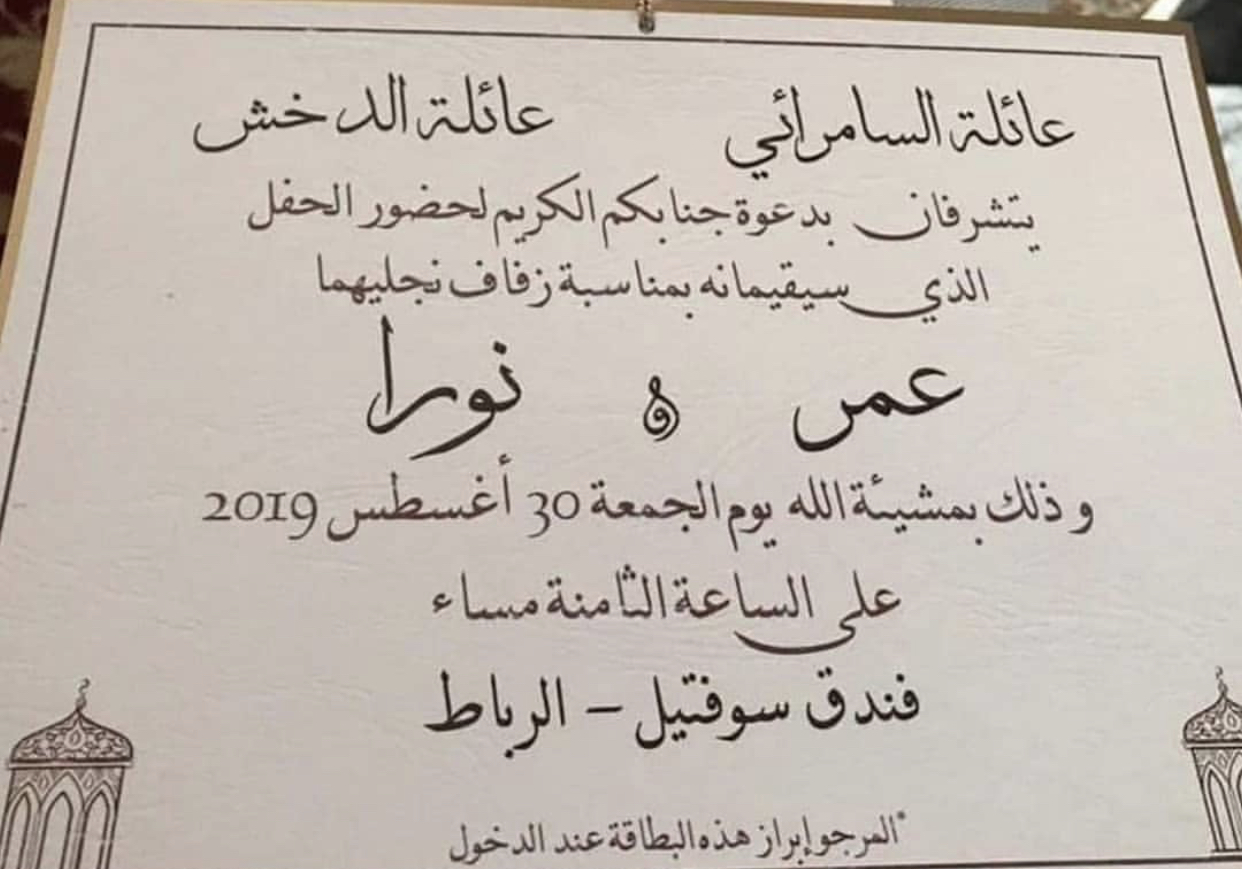 عائلة السامرائي عائلة الدخش
يتشرفان بدعوة جنابكم الكريم لحضور الحفل
الذي سيقيمانه بمناسبة زفاف نجليهما
عمر و نورا
و ذلك بمشيئة الله يوم الجمعة 30 أغسطس 2019
على الساعة الثامنة مساء
فندق سوفتيل – الرباط
*المرجو إبراز هذه البطاقة عند الدخول